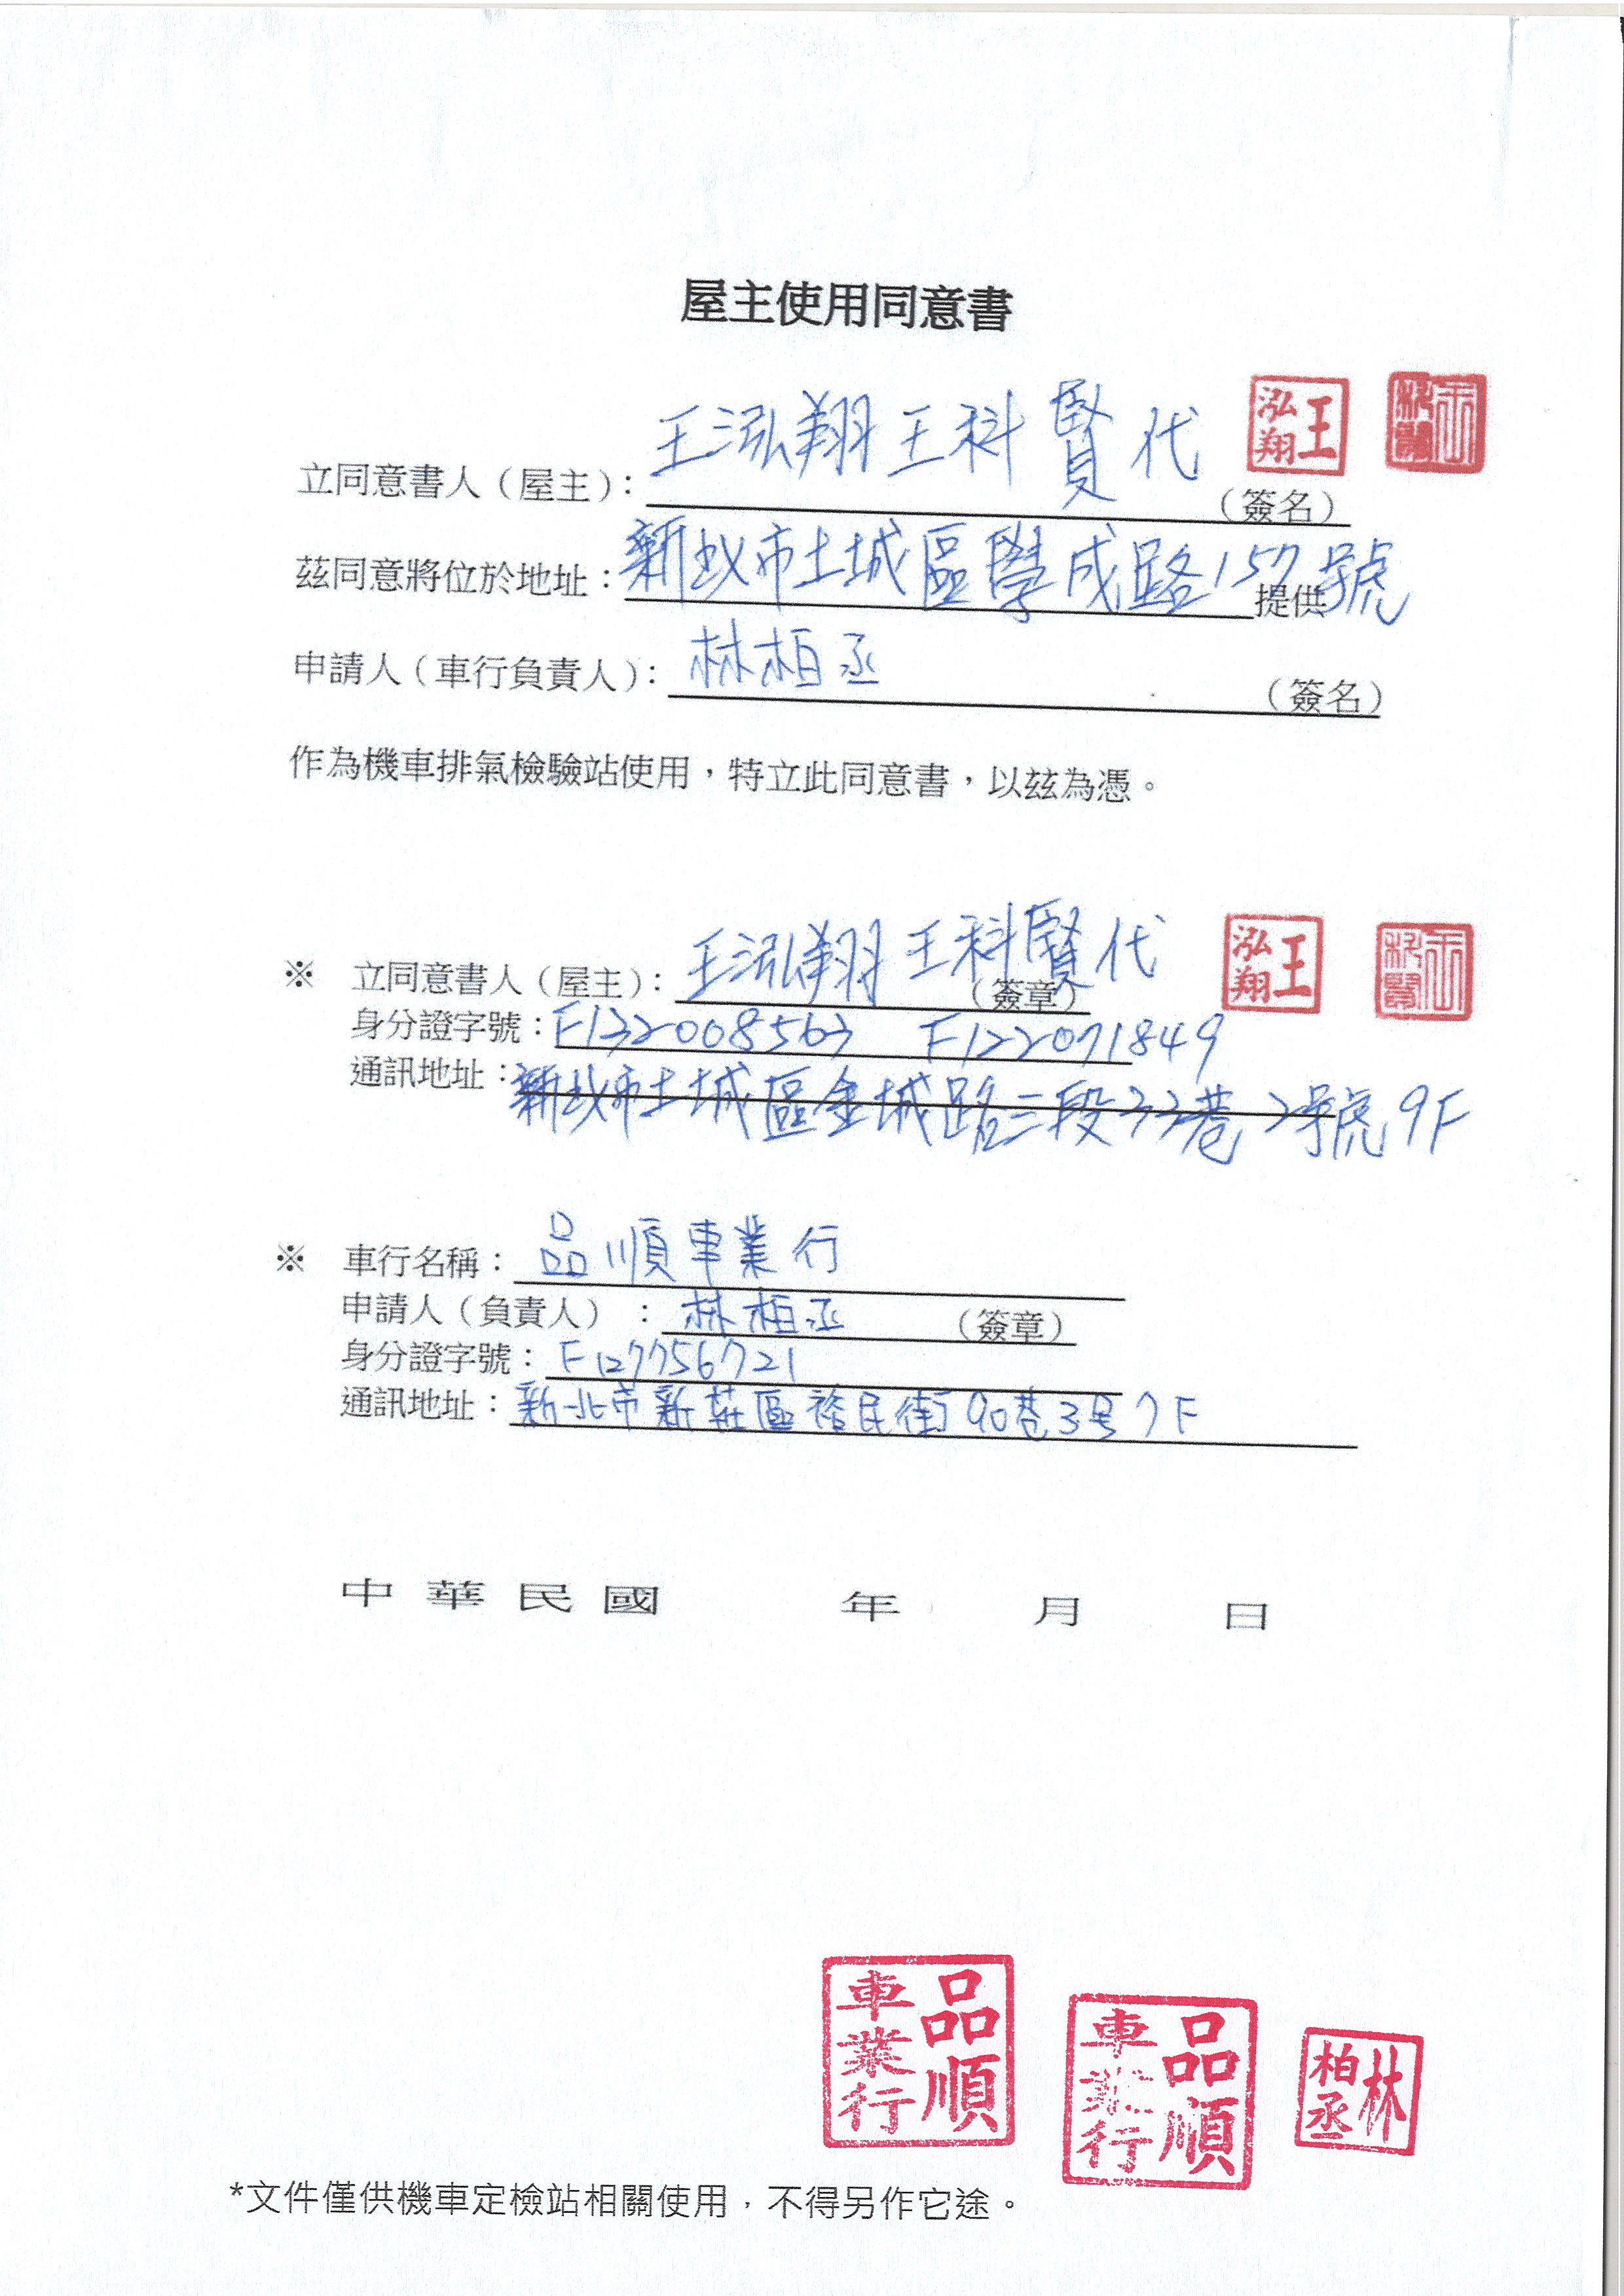 屋主使用同意書
立同意書人（屋主）：王泓翔 王科賢代（簽名）
泓翔王
茲同意將位於地址：新北市土城區學成路157號提供
申請人（車行負責人）：林柏丞（簽名）
作為機車排氣檢驗站使用，特立此同意書，以玆為憑。
※ 立同意書人（屋主）：王泓翔 王科賢代（簽章）
泓翔王
身分證字號：F132008563 F122071849
通訊地址：新北市土城區金城路三段33巷2號9F
※ 車行名稱：品順車業行
申請人（負責人）：林柏丞（簽章）
身分證字號：F127756721
通訊地址：新北市新莊區裕民街90巷3号7F
中華民國 年 月 日
品順車業行
品順車業行
林柏丞
*文件僅供機車定檢站相關使用，不得另作它途。